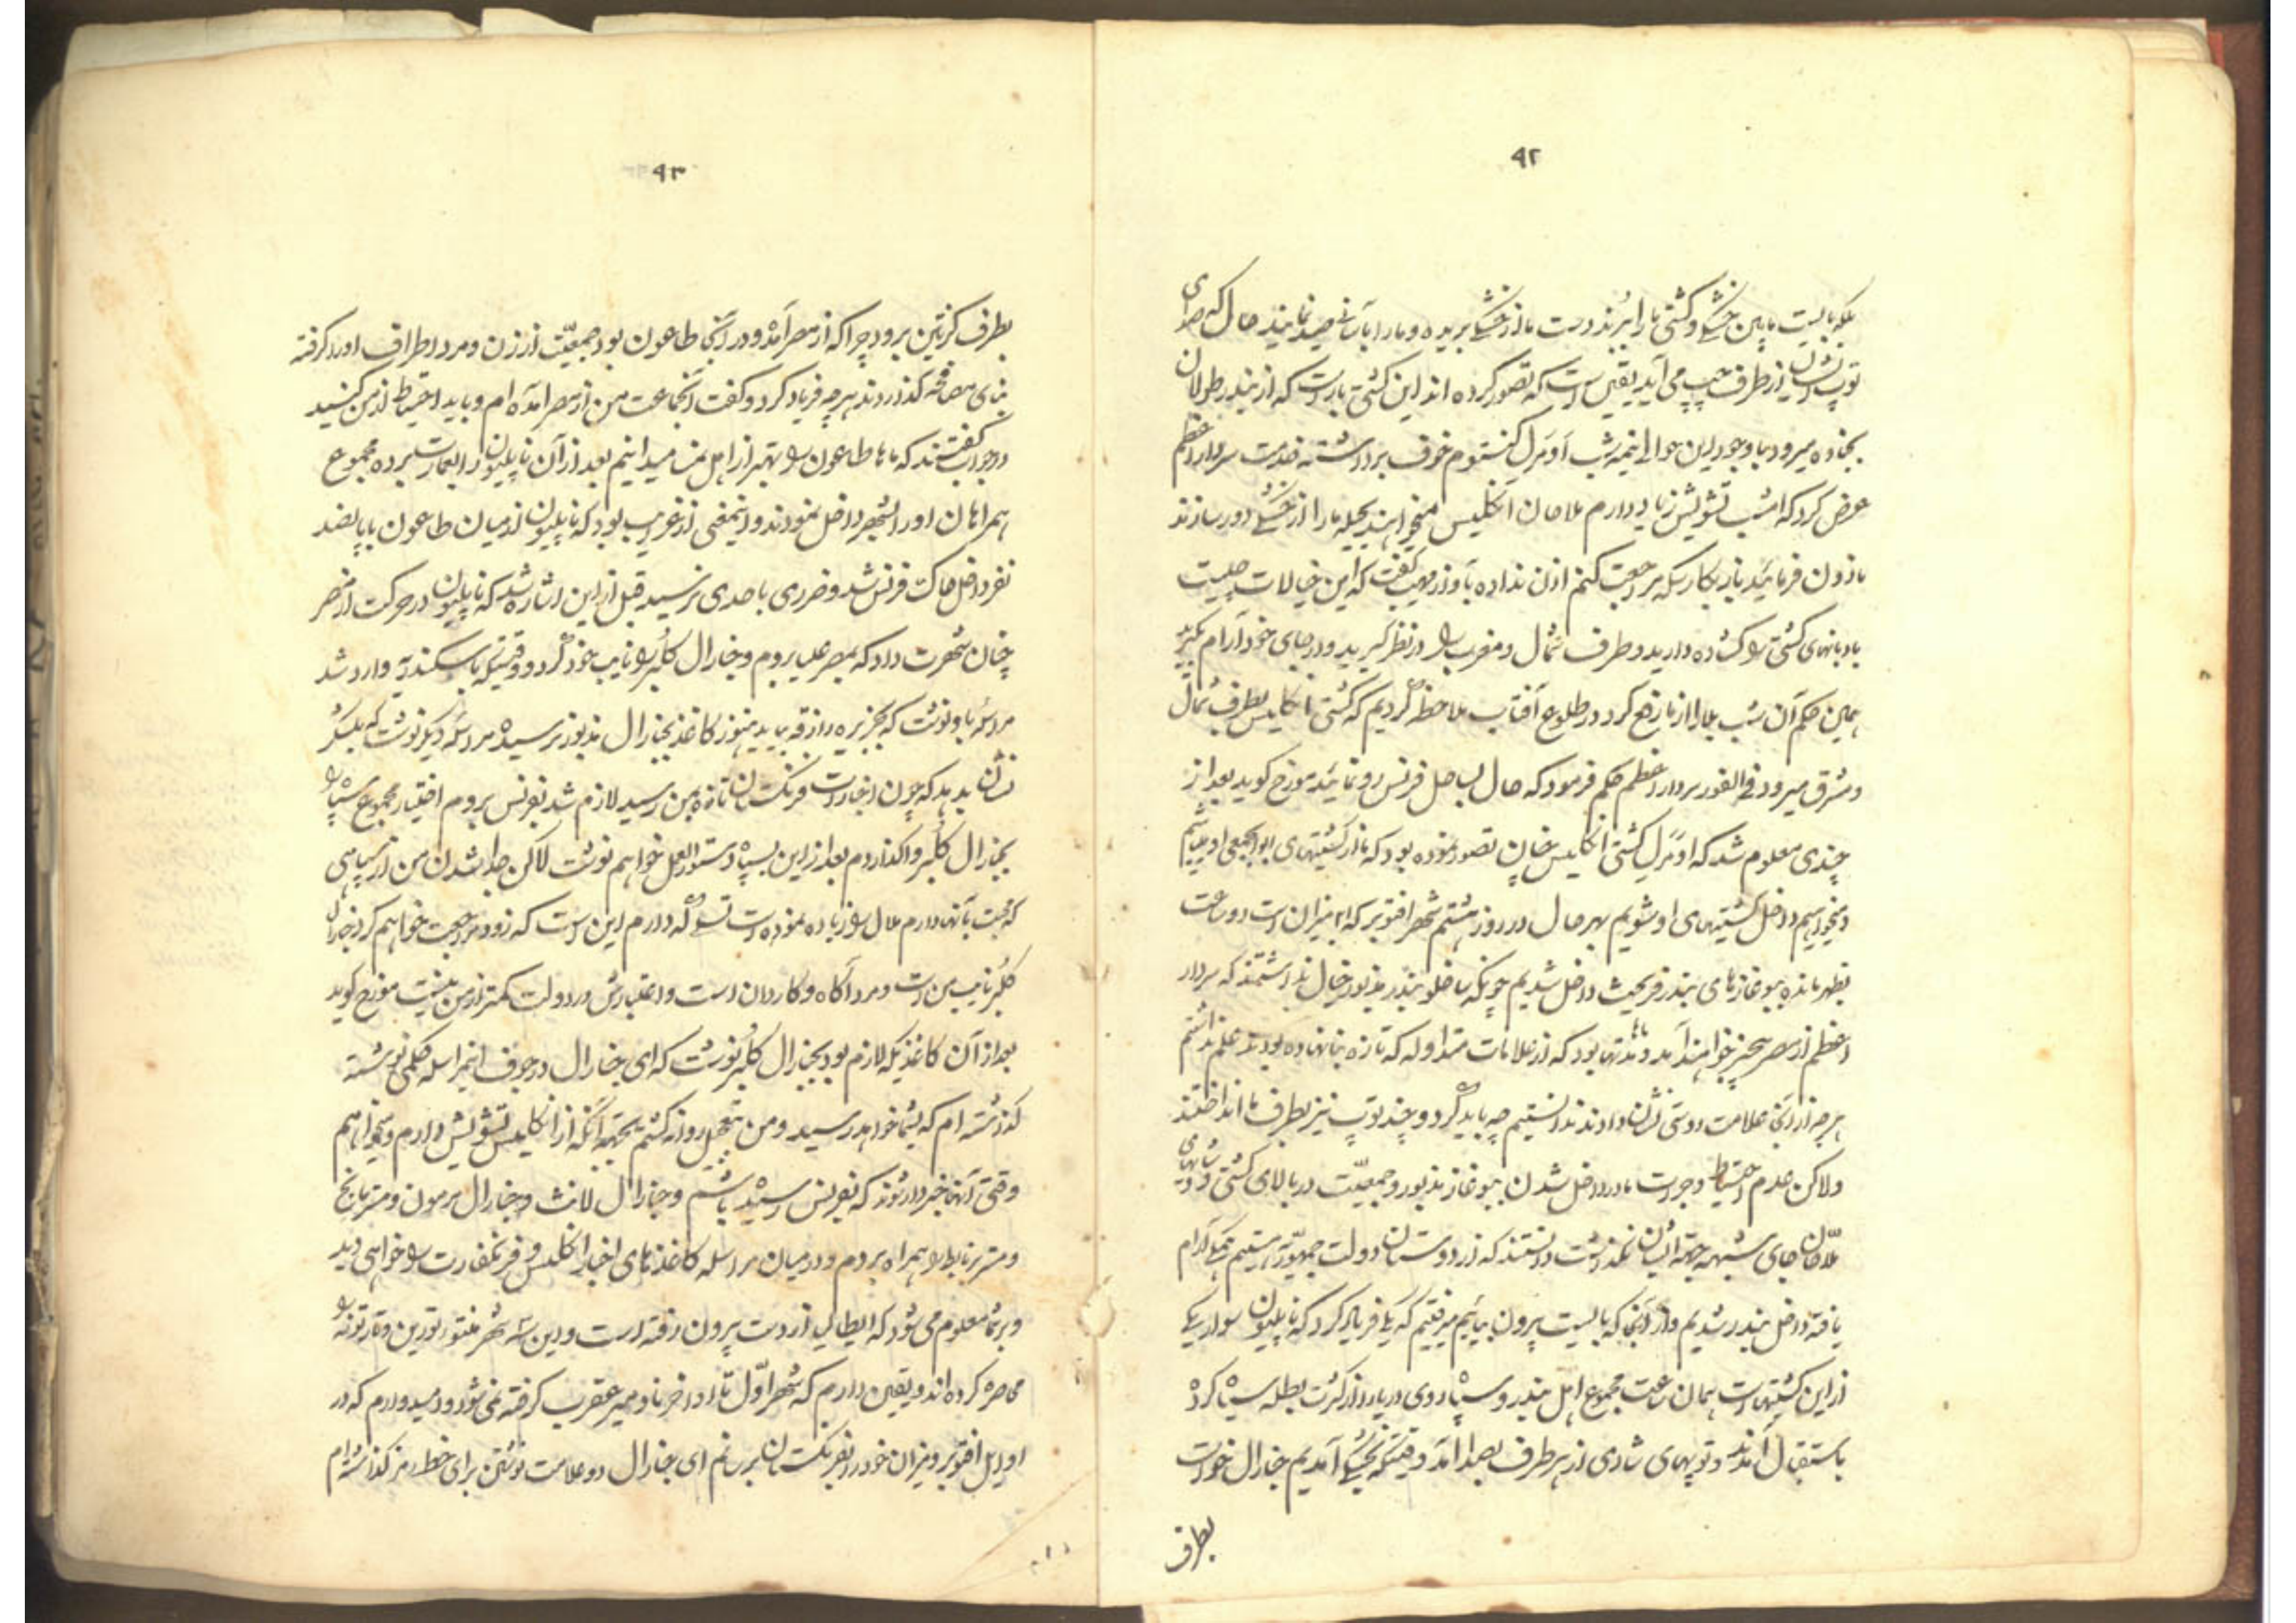 ۹۲
بلکه بایست مابین خشکی و کشتی ما را ببرند دست ما از خشکی بریده و ما را بآسانی صید نمایند حال که صدای
توپ ایشان از طرف چپ می آید یقین است که تصور کرده اند این کشتی بار است که از بندر طولان
میرود با وجود این حوال نیمه شب اومرل کنتوم خوف برداشته خدمت سردار اعظم
عرض کرد که امشب تشویش زیاد دارم ملاحان انکلیس میخواهند بحیله ما را از خشکی دور سازند
ماذون فرمائید باز بکارسکه مرجعت کنم اذن نداده بآواز مهیب گفت که این خیالات چیست
بادبانهای کشتی را کشاده دارید و طرف شمال و مغرب را در نظر گیرید و در جای خود آرام بگیرید
همین حکم آن شب بلا را از ما رفع کرد در طلوع آفتاب ملاحظه کردیم که کشتی انکلیس بطرف شمال
و مشرق میرود فی الفور سردار اعظم حکم فرمود که حال بساحل فرنس رو نمائید مورخ کوید بعد از
چندی معلوم شد که اومرل کشتی انکلیس چنان تصور نموده بود که ما از کشتیهای ابوابجمعی او میباشیم
و میخواهیم داخل کشتیهای او شویم بهر حال در روز هشتم شهر اقتوبر که میزان است دو ساعت
بظهر مانده ببوغازهای بندر فریجیث داخل شدیم چونکه ساخلو بندر مذبور خیال نداشتند که سردار
اعظم از مصر بیخبر خواهند آمد و مدتها بود که از علامات متداوله که تازه بنا نهاده بودند علم نداشتیم
هر چه از آنجا علامت دوستی نشان دادند ندانستیم چه باید کرد و چند توپ نیز بطرف ما انداختند
ولاکن عدم احتیاط و جرات ما در داخل شدن ببوغاز مذبور و جمعیّت در بالای کشتی و شادیهای
ملّاحان جای شبهه بجهة ایشان نگذاشت دانستند که از دوستان دولت جمهوّریه هستیم همکی آرام
یافته داخل بندر شدیم و از آنجا که بایست بیرون بیائیم میرفتیم که یکی فریاد کرد که ناپلیون سوار یکی
از این کشتیهاست همان ساعت مجموع اهل بندر و سپاه روی دریا را از کثرت بطله سیاه کرده
باستقبال آمدند و توپهای شادی از هر طرف بصدا آمد وقتیکه بخشکی آمدیم جنارال خواست
بطرف
۹۳
بطرف کرنتین برود چرا که از مصر آمده و در آنجا طاعون بود جمعیّت از زن و مرد اطراف او را کرفته
بنای مصافحه کذاردند هر چه فریاد کرد و کفت آنجماعت من از مصر آمده ام و باید احتیاط از من کنید
در جواب کفتند که ما طاعون را بهتر از اهل نمسا میدانیم بعد از آن ناپلیون را بعمارت برده مجموع
همراهان او را بشهر داخل نمودند و اینمعنی از غرایب بود که ناپلیون از میان طاعون با پانصد
نفر داخل خاک فرنس شد و ضرری باحدی نرسید قبل از این اشاره شد که ناپلیون در حرکت از مصر
چنان شهرت داد که بمصر علیا بروم و جنارال کلبر را نایب خود کرد و وقتیکه باسکندریه وارد شد
مراسله باو نوشت که بجزیره رازقه بیاید هنوز کاغذ بجنارال مذبور نرسیده مراسله دیکر نوشت که بلشکر
نشان بدهد که چون اخبارات فرنکستان تازه بمن رسید لازم شد بفرنس بروم اختیار مجموع سپاه را
بجنارال کلبر واکذاردم بعد از این بسپاه دستورالعمل خواهم نوشت لاکن جدا شدن من از سپاهی
که محبت بآنها دارم ملال را زیاده نموده است تسلّی که دارم این است که زود مرجعت خواهم کرد جنارال
کلبر نایب من است و مرد آکاه و کاردان است و اعتبارش در دولت کمتر از من نیست مورخ کوید
بعد از آن کاغذیکه لازم بود بجنارال کلبر نوشت که ای جنارال در جوف اینمراسله حکمی نوشته
کذاشته ام که بشما خواهد رسید و من بتعجیل روانه کشتم بجهة آنکه از انکلیس تشویش دارم و میخواهم
وقتی آنها خبردار شوند که بفرنس رسیده باشم و جنارال لانث و جنارال مرمون و مستر مانج
و مستر برتلیط را همراه بردم و در میان مراسله کاغذهای اخبار انکلیس و فرنکفارت را خواهی دید
و بر شما معلوم می شود که ایطالی از دست بیرون رفته است و این سه شهر منتو و تورین و تارتونه را
محاصره کرده اند و یقین دارم که شهر اوّل تا اواخر نوامبر عقرب کرفته نمی شود و امیدوارم که در
اوایل اقتوبر و میزان خود را بفرنکستان برسانم ای جنارال دو علامت نوشتن برای خط رمز کذاشته ام